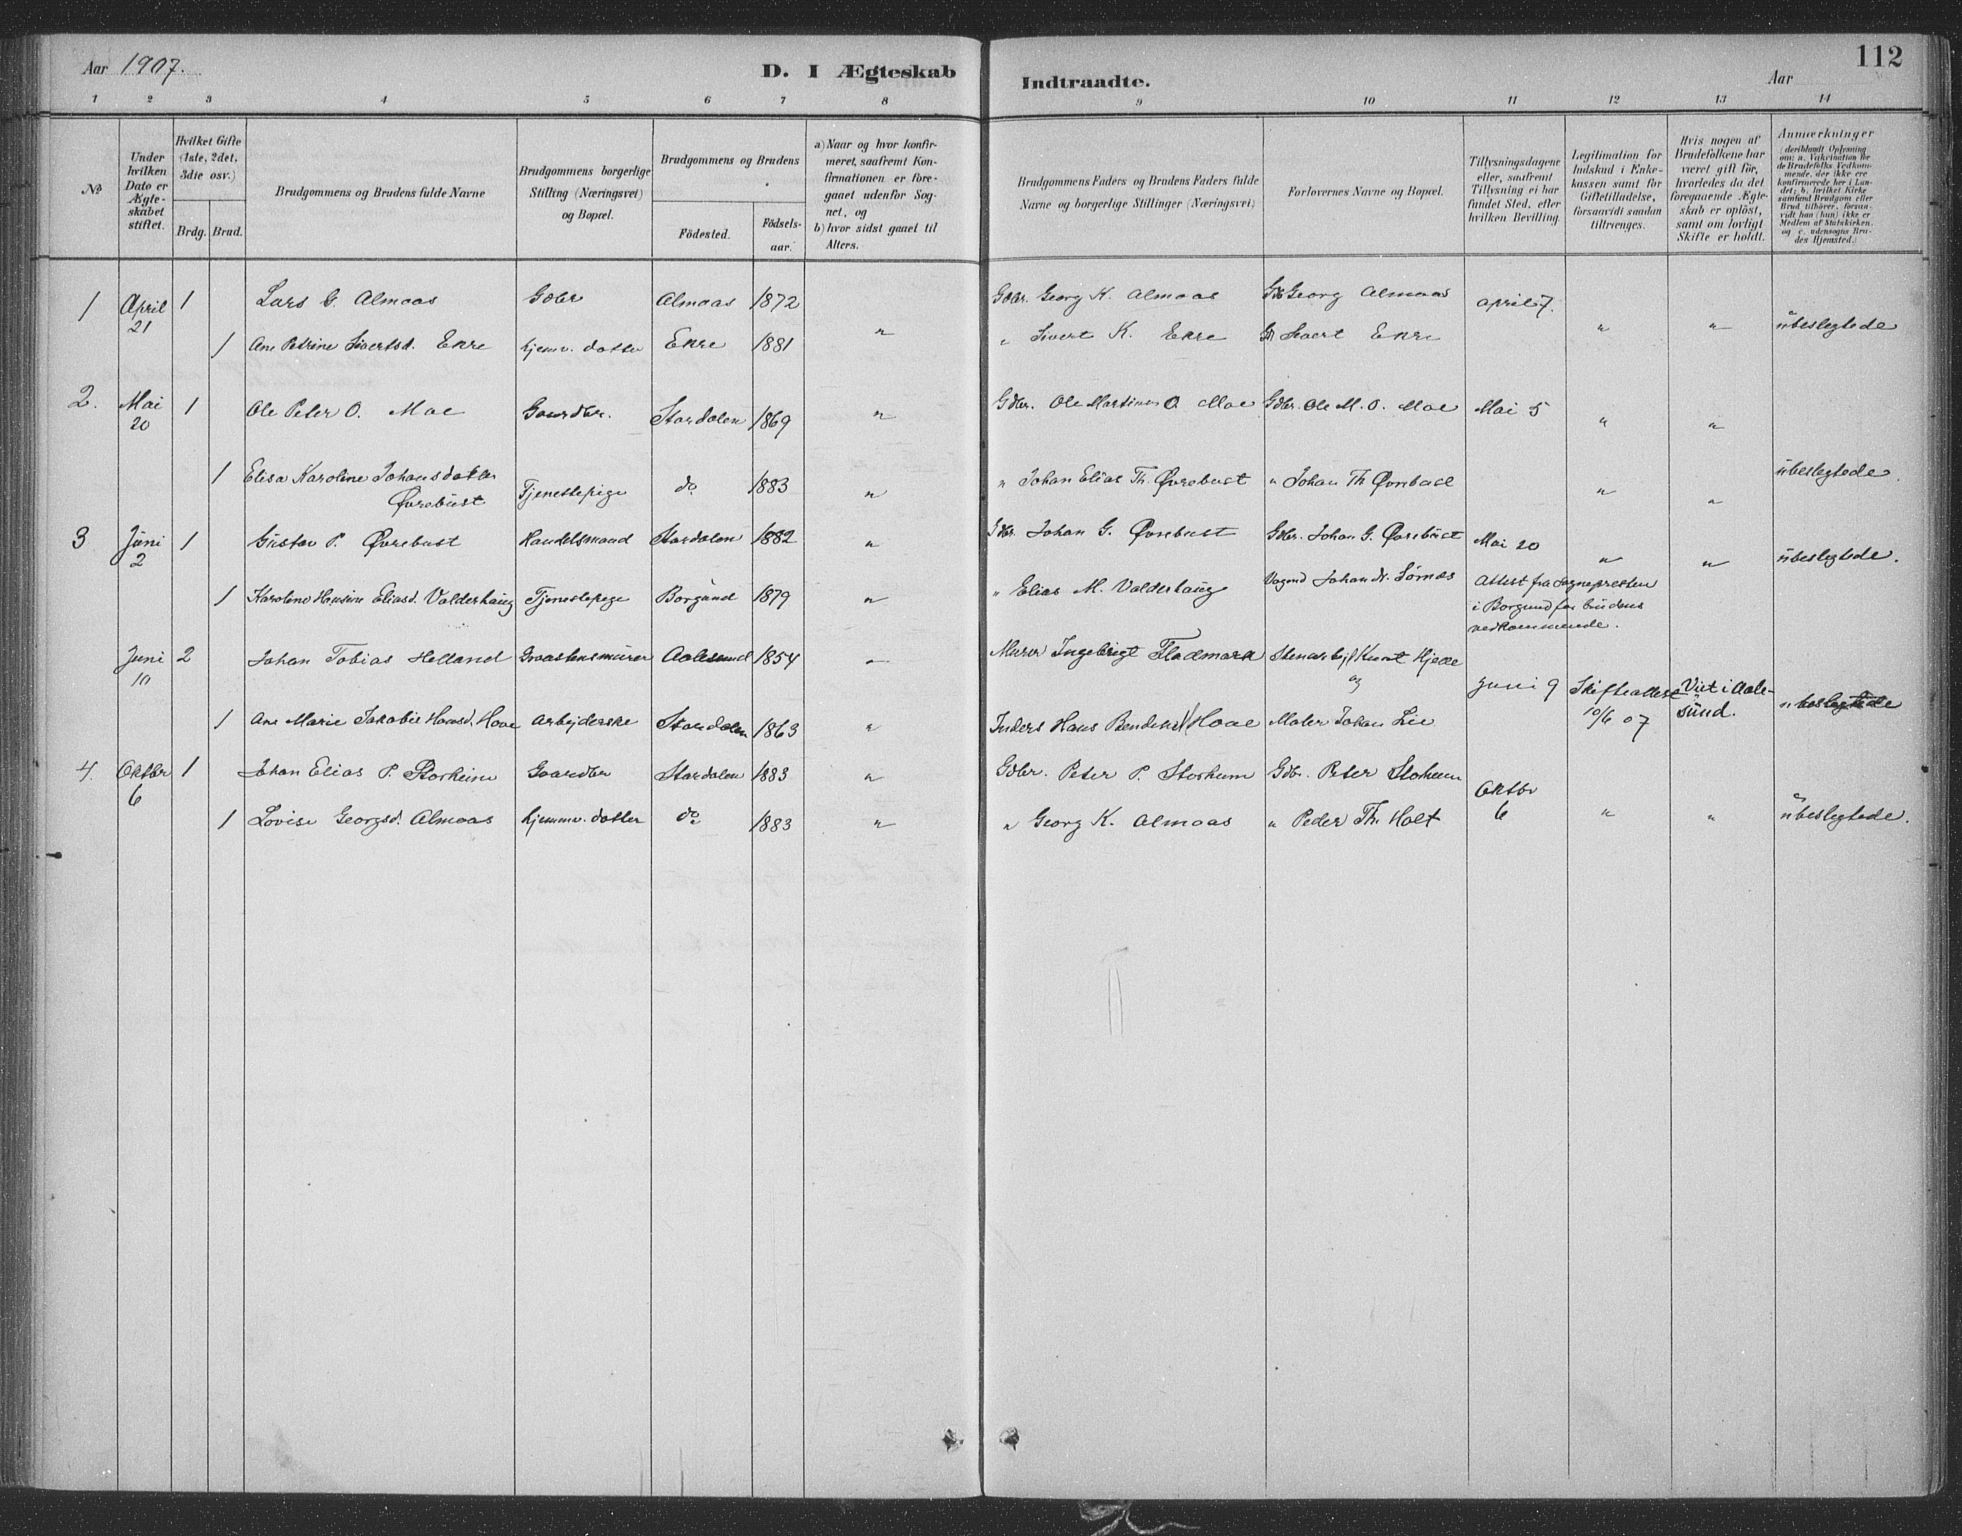 Aar 1907.
D. I Ægteskab Indtraadte.
Aar
112
1 2 3 4 5 6 7 8 9 10 11 12 13 14
No
Under hvilken Dato er Ægteskabet stiftet.
Hvilket Gifte (1ste, 2det, 3die osv.)
Brdg. Brud.
Brudgommens og Brudens fulde Navne
Brudgommens borgerlige Stilling (Næringsvei) og Bopæl.
Brudgommens og Brudens
Födested.
Födselsaar.
a) Naar og hvor konfirmeret, saafremt Konfirmationen er foregaaet udenfor Sognet, og
b) hvor sidst gaaet til Alters.
Brudgommens Faders og Brudens Faders fulde Navne og borgerlige Stillinger (Næringsvei)
Forlovernes Navne og Bopæl.
Tillysningsdagene eller, saafremt Tillysning ei har fundet Sted, efter hvilken Bevilling.
Legitimation for Indskud i Enkekassen samt for Giftetilladelse, forsaavidt saadan tiltrænges.
Hvis nogen af Brudefolkene har været gift för, hvorledes da det foregaaende Ægteskab er oplöst, samt om lovligt Skifte er holdt.
Anmærkninger (deriblandt Oplysning om: a. Vakcination for de Brudefolks Vedkommende, der ikke ere konfirmerede her i Landet; b. hvilket Kirkesamfund Brudgom eller Brud tilhörer, forsaavidt han (hun) ikke er Medlem af Statskirken, og c. udensogns Brudes Hjemsted.)
1 April 21 1 Lars G. Almaas Gdbr Almaas 1872 " Gdbr. Georg K. Almaas Georg Almaas April 7.
1 Ane Petrine Sivertsd. Ekre hjemv. datter Ekre 1881 " Sivert K. Ekre Sivert Ekre " " ubeslegtede
2. Mai 20 1 Ole Peter O. Moe Gaardbr. Stordalen 1869 " Gdbr. Ole Martinus O. Moe Gdbr. Ole M. O. Moe Mai 5 " "
1 Elisa Karoline Johansdatter Øvrebust Tjenestepige do 1883 " " Johan Elias Th. Øvrebust " Johan Th. Øvrebust " " ubeslegtede.
3 Juni 2 1 Gustav P. Øvrebust Handelsmand Stordalen 1882 " Gdbr. Johan G. Øvrebust Gdbr. Johan G. Øvrebust Mai 20 " " ubeslegtede.
1 Karoline Hansine Eliasd. Valderhaug Tjenestepige Borgund 1879 " " Elias M. Valderhaug Johan Attest fra Sognepresten
i Borgund for brudens
vedkommende.
Juni 10 2 Johan Tobias Helland Graastensmurer Aalesund 1854 – Murer Ingebrigt Fladmark Stenarbej. Knut
og
Juni 9 Skifteattest 10/6 07 Viet i Aalesund. ubeslegtede
1 Ane Marie Jakobie Hansd. Hoae Arbejderske Stordalen 1863 " Inders Hans Hoae Maler Johan Lie
4. Oktbr 6 1 Johan Elias P. Storheim Gaardbr Stordalen 1883 " Gdbr. Peter P. Storheim Gdbr. Peter Storheim Oktbr 6
1 Lovise Georgsd. Almaas hjemmv. datter do 1883 " " Georg K. Almaas " Peder Th. Holt " " ubeslegtede.